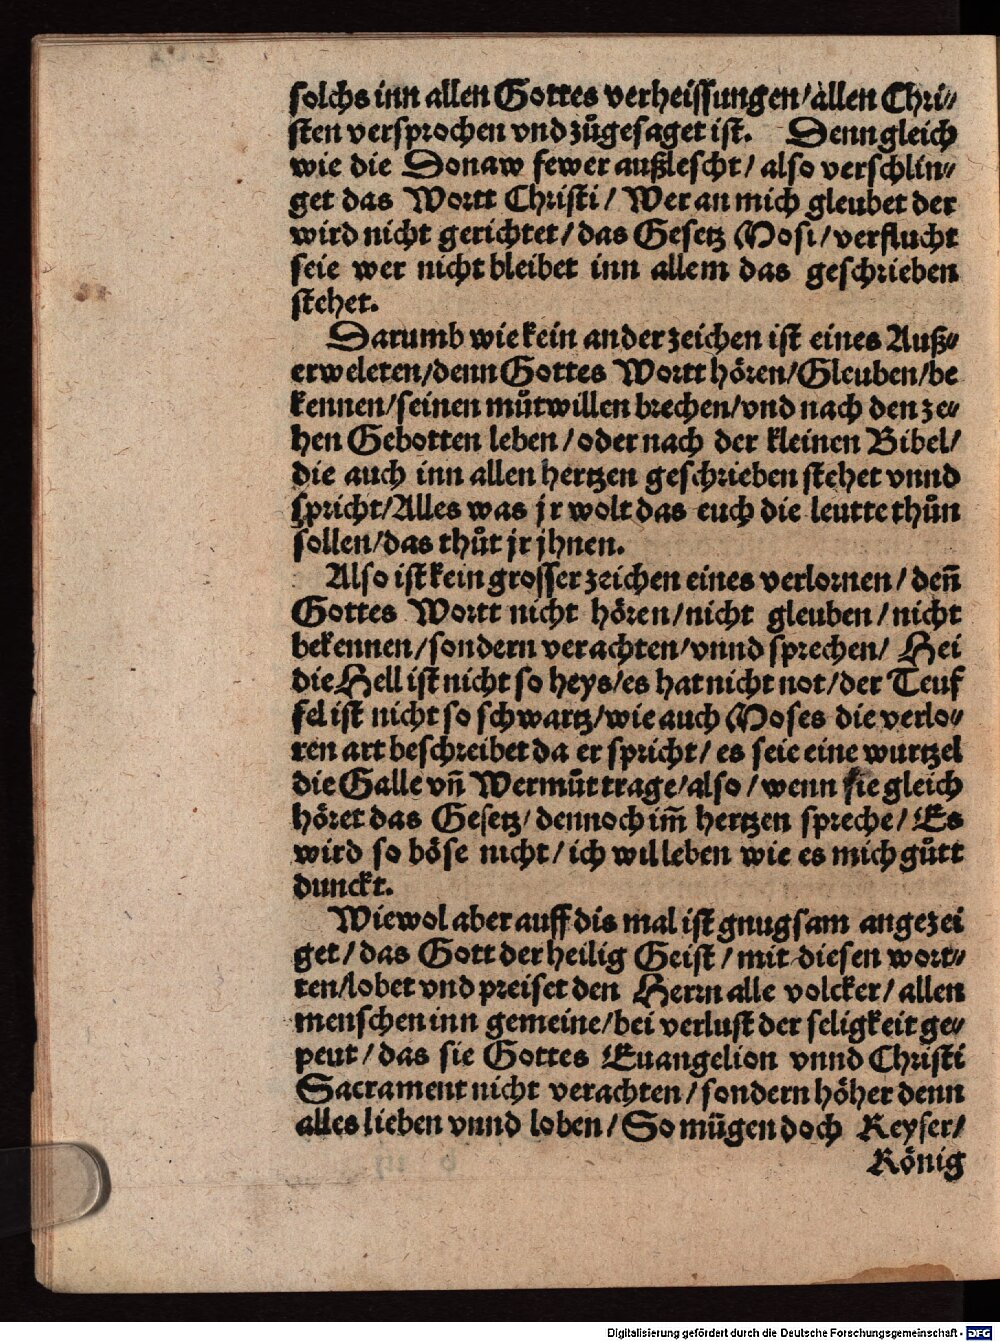 solchs inn allen Gottes verheissungen/allen Chri⸗
sten versprochen vnd zůgesaget ist. Denn gleich
wie die Donaw fewer außlescht/ also verschlin⸗
get das Wortt Christi/ Wer an mich gleubet der
wird nicht gerichtet/ das Gesetz Mosi/ verflucht
seie wer nicht bleibet inn allem das geschrieben
stehet.
Darumb wie kein ander zeichen ist eines Auß⸗
erweleten/denn Gottes Wortt hören/Gleuben/be
kennen/seinen můtwillen brechen/vnd nach den ze⸗
hen Gebotten leben/oder nach der kleinen Bibel/
die auch inn allen hertzen geschrieben stehet vnnd
spricht/Alles was jr wolt das euch die leutte thůn
sollen/das thůt jr jhnen.
Also ist kein grosser zeichen eines verlornen/ deñ
Gottes Wortt nicht hören/nicht gleuben/nicht
bekennen/sondern verachten/vnnd sprechen/ Hei
die Hell ist nicht so heys/es hat nicht not/der Teuf
fel ist nicht so schwartz/wie auch Moses die verlo⸗
ren art beschreibet da er spricht/ es seie eine wurtzel
die Galle vñ Wermůt trage/also/ wenn sie gleich
höret das Gesetz/ dennoch im̃ hertzen spreche/ Es
wird so böse nicht/ich wil leben wie es mich gůtt
dunckt.
Wiewol aber auff dis mal ist gnugsam angezei
get/das Gott der heilig Geist/mit diesen wort⸗
ten/lobet vnd preiset den Herrn alle volcker/allen
menschen inn gemeine/bei verlust der seligkeit ge⸗
peut/das sie Gottes Euangelion vnnd Christi
Sacrament nicht verachten/sondern höher denn
alles lieben vnnd loben/So mügen doch Keyser/
König
Digitalisierung gefördert durch die Deutsche Forschungsgemeinschaft - DFG